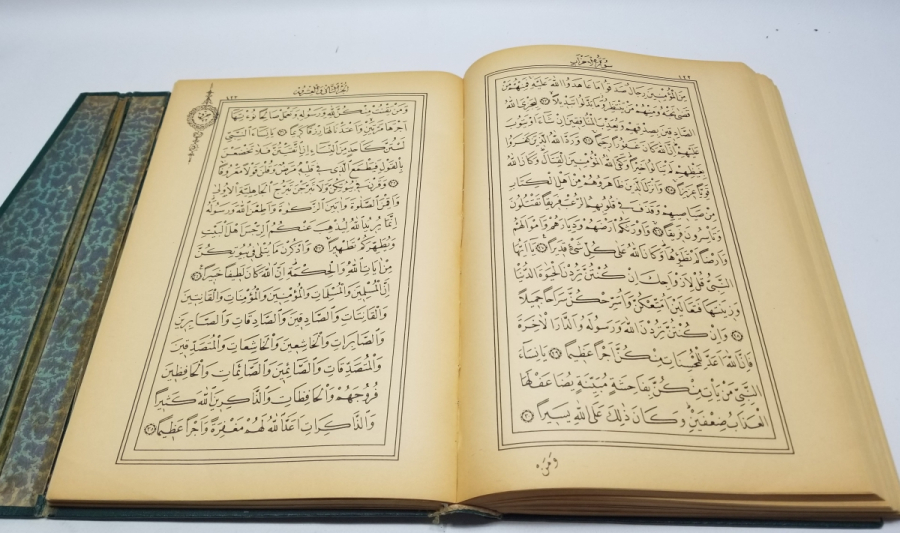 سورة الاحزاب
مِنَ الْمُؤْمِنِينَ رِجَالٌ صَدَقُوا مَا عَاهَدُوا اللّٰهَ عَلَيْهِ فَمِنْهُمْ مَنْ
قَضٰى نَحْبَهُ وَمِنْهُمْ مَنْ يَنْتَظِرُ وَمَا بَدَّلُوا تَبْدِيلًا لِيَجْزِىَ اللّٰهُ
الصَّادِقِينَ بِصِدْقِهِمْ وَيُعَذِّبَ الْمُنَافِقِينَ اِنْ شَاءَ اَوْ يَتُوبَ
عَلَيْهِمْ اِنَّ اللّٰهَ كَانَ غَفُورًا رَحِيمًا وَرَدَّ اللّٰهُ الَّذِينَ كَفَرُوا
بِغَيْظِهِمْ لَمْ يَنَالُوا خَيْرًا وَكَفَى اللّٰهُ الْمُؤْمِنِينَ الْقِتَالَ وَكَانَ اللّٰهُ
قَوِيًّا عَزِيزًا وَاَنْزَلَ الَّذِينَ ظَاهَرُوهُمْ مِنْ اَهْلِ الْكِتَابِ
مِنْ صَيَاصِيهِمْ وَقَذَفَ فِى قُلُوبِهِمُ الرُّعْبَ فَرِيقًا تَقْتُلُونَ
وَتَأْسِرُونَ فَرِيقًا وَاَوْرَثَكُمْ اَرْضَهُمْ وَدِيَارَهُمْ وَاَمْوَالَهُمْ
وَاَرْضًا لَمْ تَطَؤُهَا وَكَانَ اللّٰهُ عَلٰى كُلِّ شَىْءٍ قَدِيرًا يَا اَيُّهَا
النَّبِىُّ قُلْ لِاَزْوَاجِكَ اِنْ كُنْتُنَّ تُرِدْنَ الْحَيٰوةَ الدُّنْيَا
وَزِينَتَهَا فَتَعَالَيْنَ اُمَتِّعْكُنَّ وَاُسَرِّحْكُنَّ سَرَاحًا جَمِيلًا
وَاِنْ كُنْتُنَّ تُرِدْنَ اللّٰهَ وَرَسُولَهُ وَالدَّارَ الْاٰخِرَةَ
فَاِنَّ اللّٰهَ اَعَدَّ لِلْمُحْسِنَاتِ مِنْكُنَّ اَجْرًا عَظِيمًا يَا نِسَاءَ
النَّبِىِّ مَنْ يَأْتِ مِنْكُنَّ بِفَاحِشَةٍ مُبَيِّنَةٍ يُضَاعَفْ لَهَا
الْعَذَابُ ضِعْفَيْنِ وَكَانَ ذٰلِكَ عَلَى اللّٰهِ يَسِيرًا
وَمَنْ
الجزء الثانى والعشرون
وَمَنْ يَقْنُتْ مِنْكُنَّ لِلّٰهِ وَرَسُولِهِ وَتَعْمَلْ صَالِحًا نُؤْتِهَا
اَجْرَهَا مَرَّتَيْنِ وَاَعْتَدْنَا لَهَا رِزْقًا كَرِيمًا يَا نِسَاءَ النَّبِىِّ
لَسْتُنَّ كَاَحَدٍ مِنَ النِّسَاءِ اِنِ اتَّقَيْتُنَّ فَلَا تَخْضَعْنَ
بِالْقَوْلِ فَيَطْمَعَ الَّذِى فِى قَلْبِهِ مَرَضٌ وَقُلْنَ قَوْلًا مَعْرُوفًا
وَقَرْنَ فِى بُيُوتِكُنَّ وَلَا تَبَرَّجْنَ تَبَرُّجَ الْجَاهِلِيَّةِ الْاُولٰى
وَاَقِمْنَ الصَّلٰوةَ وَاٰتِينَ الزَّكٰوةَ وَاَطِعْنَ اللّٰهَ وَرَسُولَهُ
اِنَّمَا يُرِيدُ اللّٰهُ لِيُذْهِبَ عَنْكُمُ الرِّجْسَ اَهْلَ الْبَيْتِ
وَيُطَهِّرَكُمْ تَطْهِيرًا وَاذْكُرْنَ مَا يُتْلٰى فِى بُيُوتِكُنَّ
مِنْ اٰيَاتِ اللّٰهِ وَالْحِكْمَةِ اِنَّ اللّٰهَ كَانَ لَطِيفًا خَبِيرًا
اِنَّ الْمُسْلِمِينَ وَالْمُسْلِمَاتِ وَالْمُؤْمِنِينَ وَالْمُؤْمِنَاتِ وَالْقَانِتِينَ
وَالْقَانِتَاتِ وَالصَّادِقِينَ وَالصَّادِقَاتِ وَالصَّابِرِينَ
وَالصَّابِرَاتِ وَالْخَاشِعِينَ وَالْخَاشِعَاتِ وَالْمُتَصَدِّقِينَ
وَالْمُتَصَدِّقَاتِ وَالصَّائِمِينَ وَالصَّائِمَاتِ وَالْحَافِظِينَ
فُرُوجَهُمْ وَالْحَافِظَاتِ وَالذَّاكِرِينَ اللّٰهَ كَثِيرًا
وَالذَّاكِرَاتِ اَعَدَّ اللّٰهُ لَهُمْ مَغْفِرَةً وَاَجْرًا عَظِيمًا